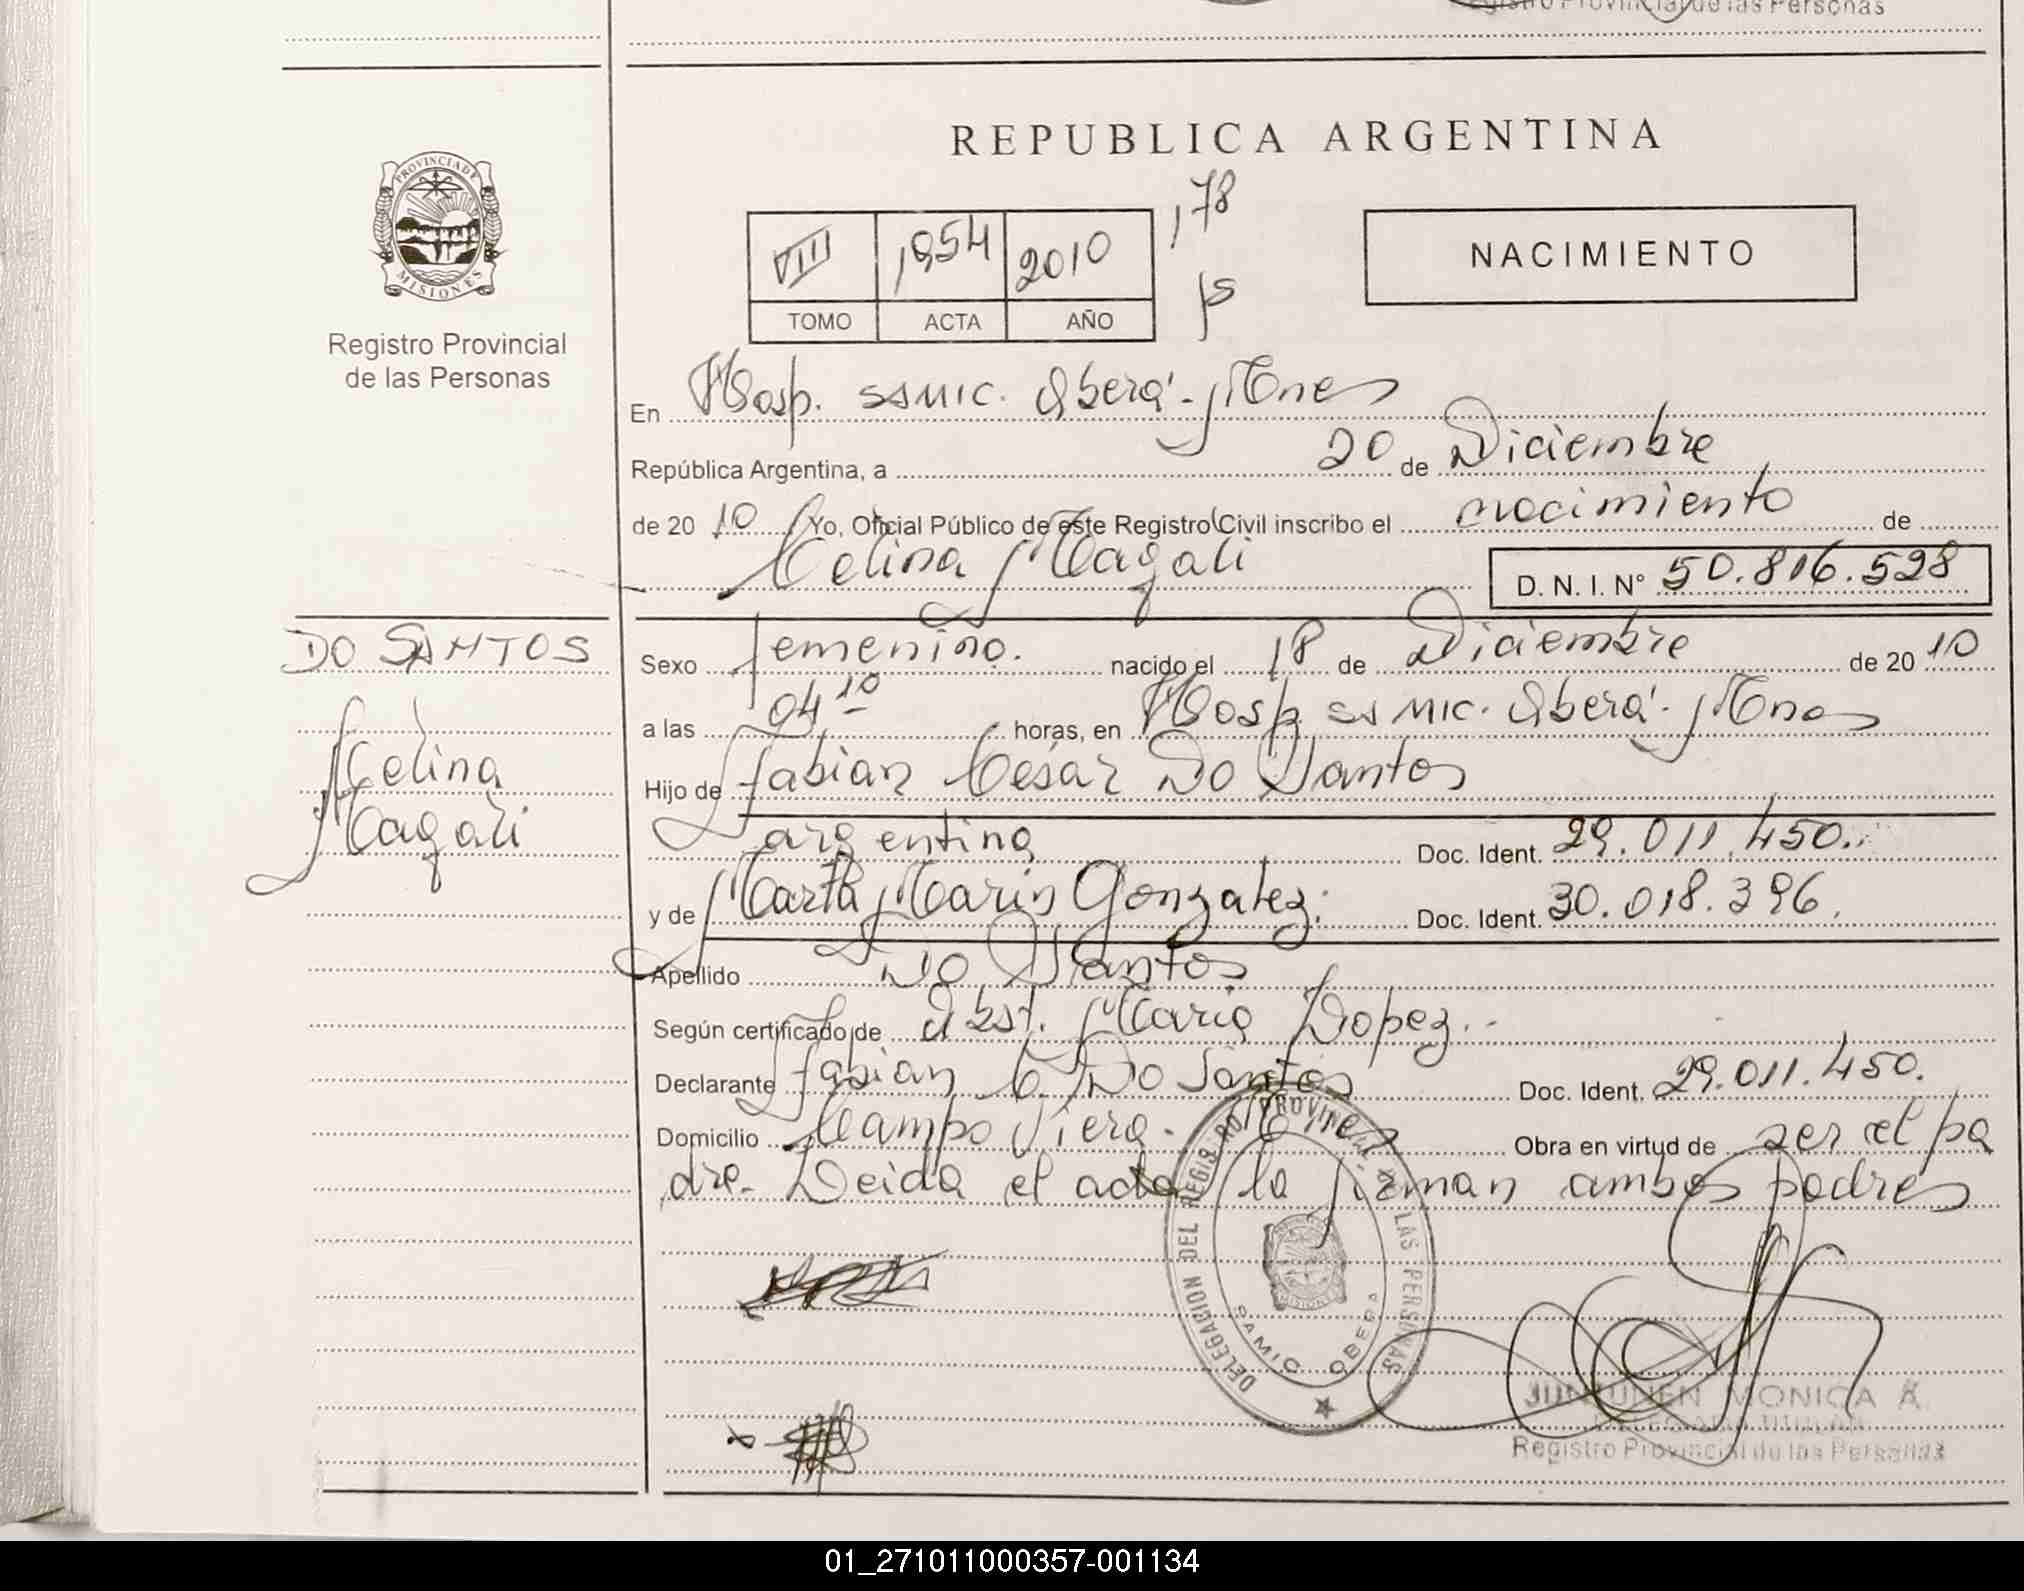 Registro Provincial de las Personas
REPUBLICA ARGENTINA
PROVINCIA DE
MISIONES
Registro Provincial
de las Personas
VIII 1954 2010
TOMO ACTA AÑO
178
NACIMIENTO
En Hosp. SAMIC. Oberá - Mnes
República Argentina, a 20 de Diciembre
de 2010 Yo, Oficial Público de este Registro Civil inscribo el nacimiento de
Celina Magali
D. N. I. N° 50.816.528
DO SANTOS
Celina
Magali
Sexo femenino. nacido el 18 de Diciembre de 2010
a las 04 10 horas, en Hosp. SAMIC. Oberá - Mnes
Hijo de Fabian César Do Santos
argentino Doc. Ident. 29.011.450.
y de Marta Marin Gonzalez. Doc. Ident. 30.018.396.
Apellido Do Santos
Según certificado de Obst. Maria Lopez.
Declarante Fabian C. Do Santos Doc. Ident. 29.011.450.
Domicilio Campo Viera - Mnes Obra en virtud de ser el pa
dre. Leida el acta la firman ambos padres
DELEGACION DEL REGISTRO PROVINCIAL DE LAS PERSONAS
SAMIC OBERA
MONICA A.
DELEGADA TITULAR
Registro Provincial de las Personas
01_271011000357-001134